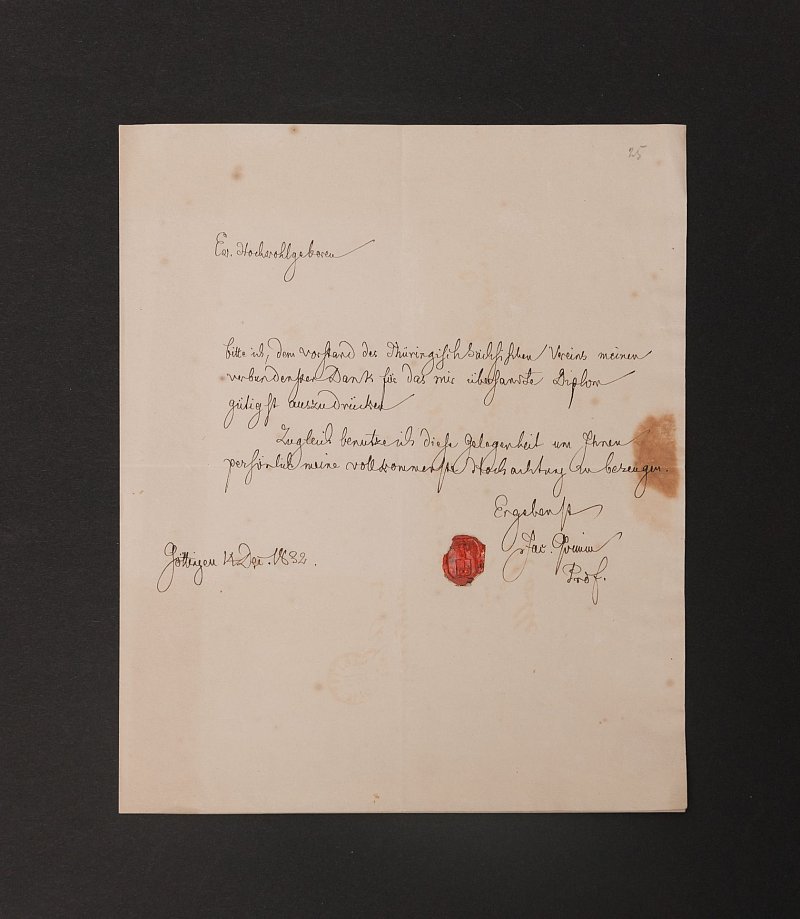 25
Ew. Hochwohlgeboren
bitte ich, dem Vorstand des Thüringisch Sächsischen Vereins meinen
verbundensten Dank für das mir übersandte Diplom
gütigst auszudrücken
Zugleich benutze ich diese Gelegenheit um Ihnen
persönlich meine vollkommenste Hochachtung zu bezeugen.
Ergebenst
Jac. Grimm
Prof.
Göttingen 14 Dec. 1832.